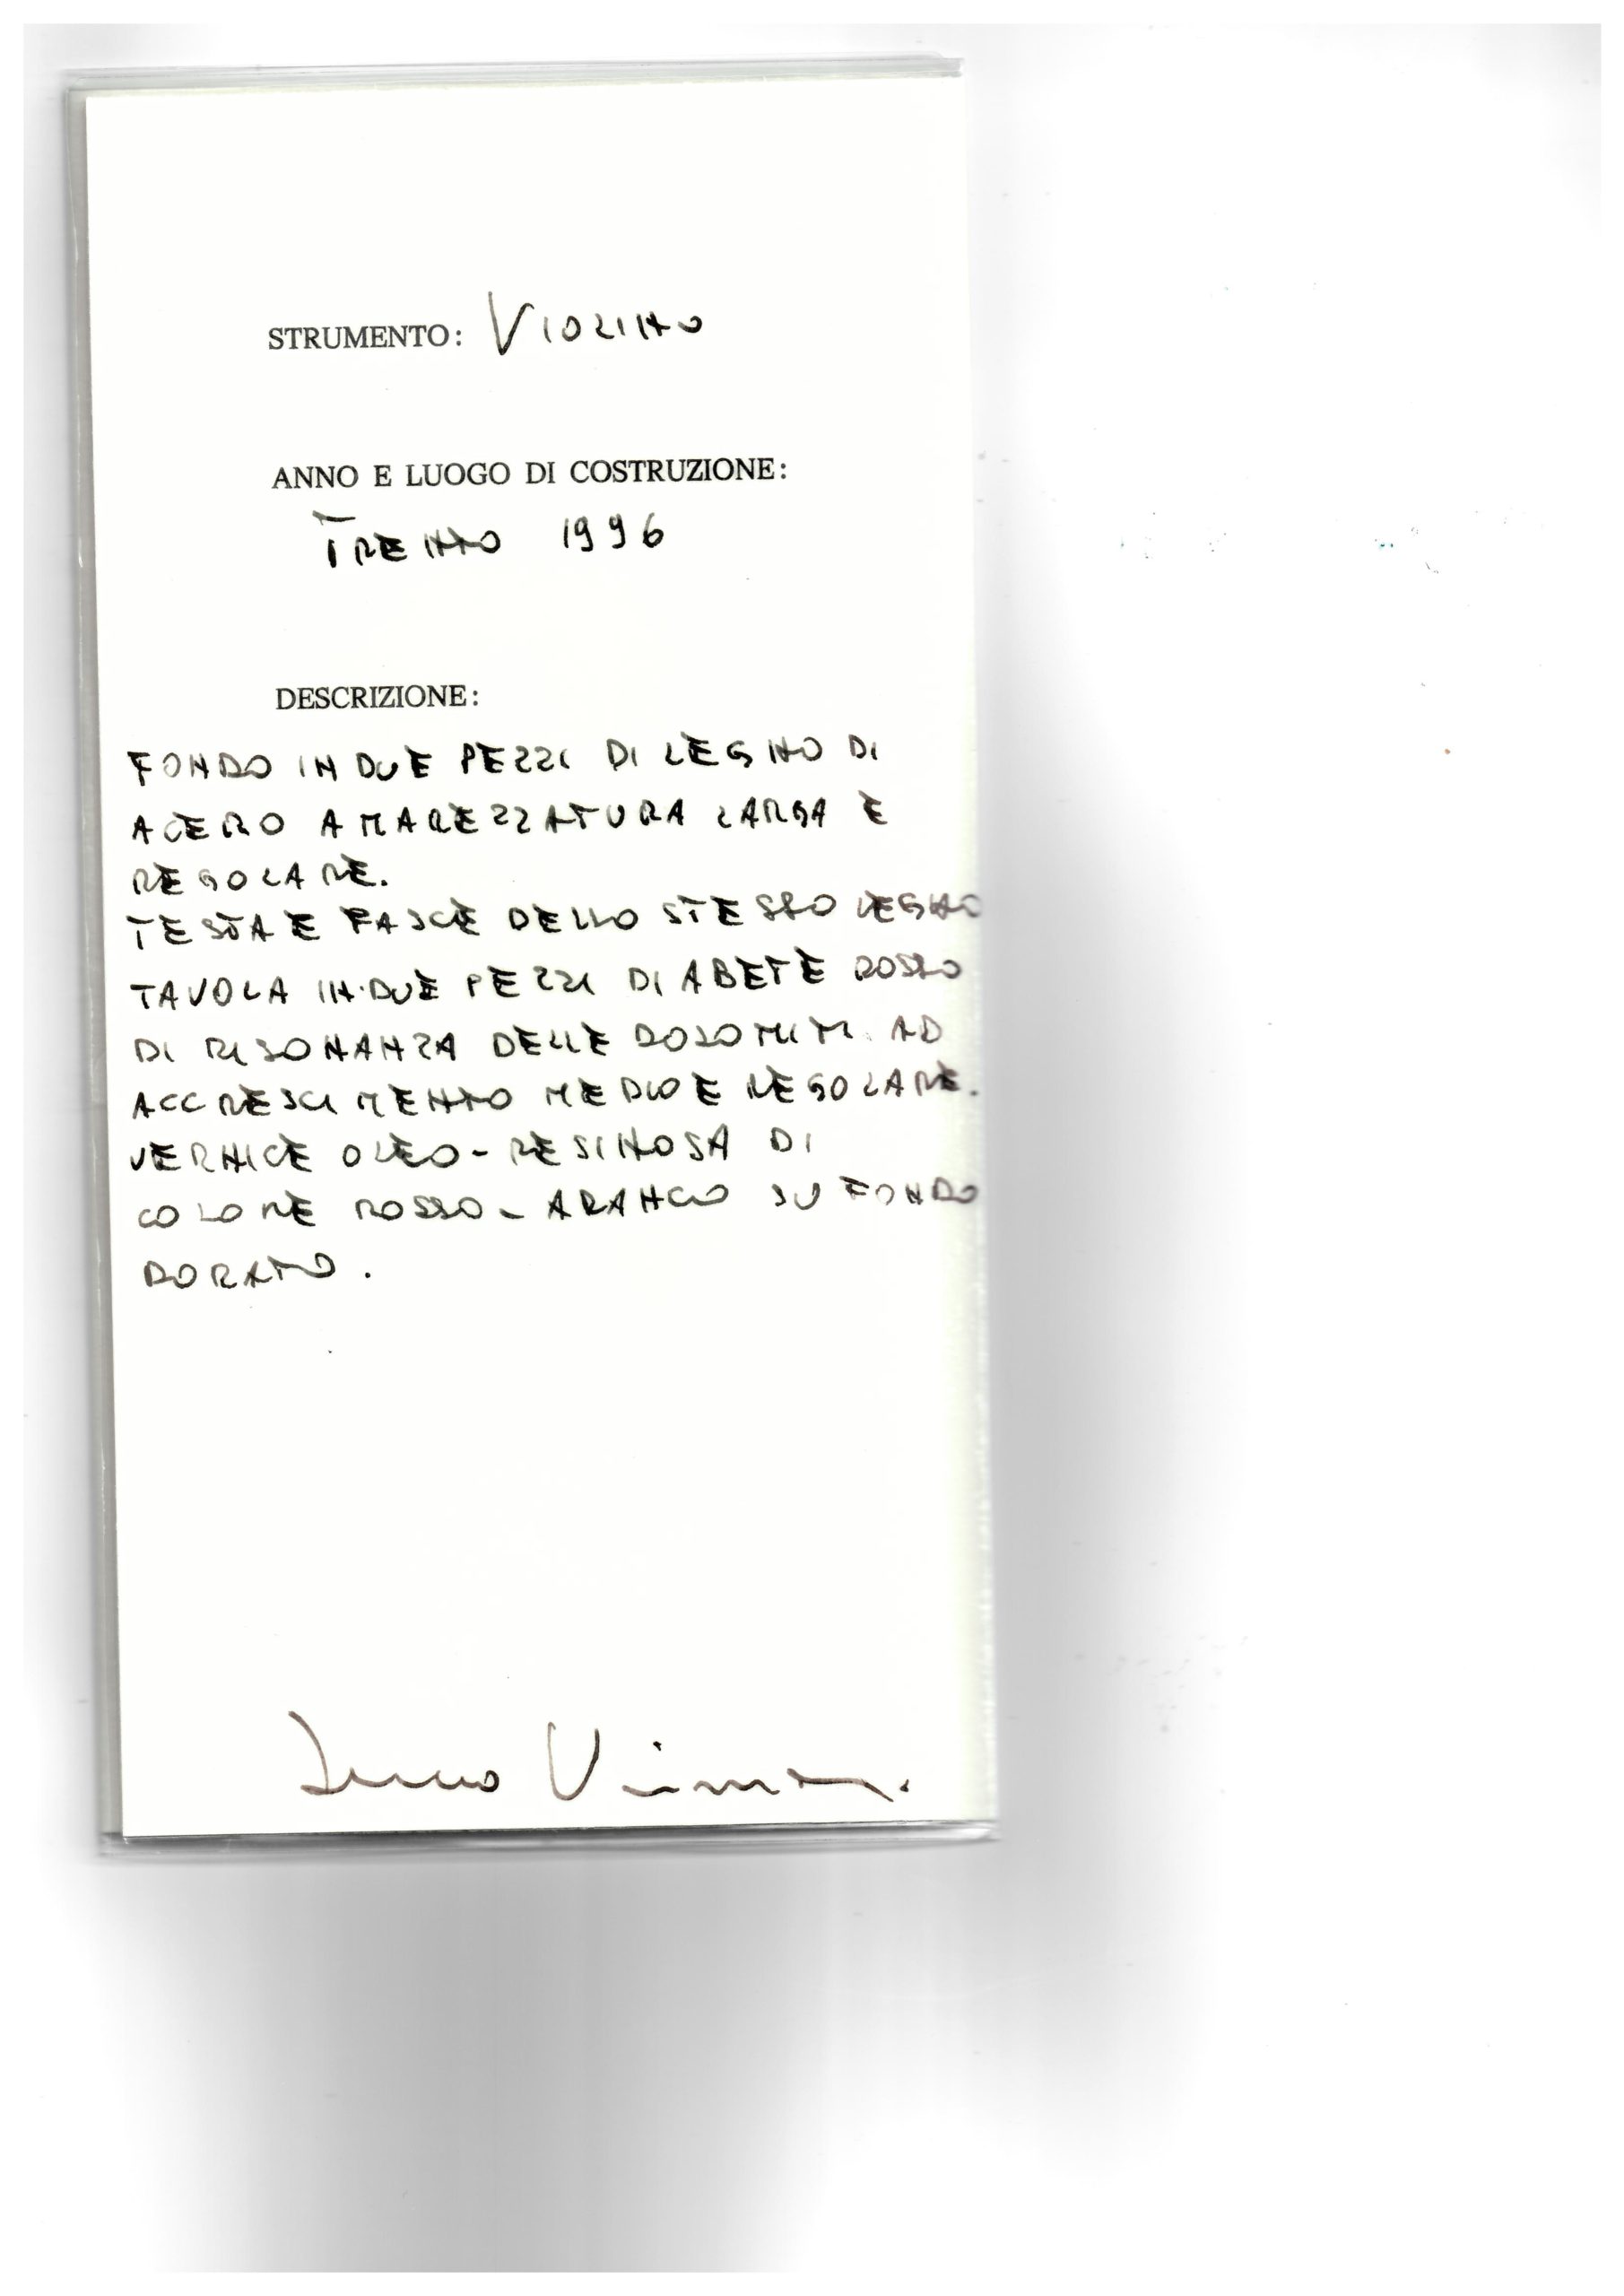 STRUMENTO: VIOLINO
ANNO E LUOGO DI COSTRUZIONE:
TRENTO 1996
DESCRIZIONE:
FONDO IN DUE PEZZI DI LEGNO DI
ACERO A MAREZZATURA LARGA E
REGOLARE.
TESTA E FASCE DELLO STESSO LEGNO
TAVOLA IN DUE PEZZI DI ABETE ROSSO
DI RISONANZA DELLE DOLOMITI AD
ACCRESCIMENTO MEDIO E REGOLARE.
VERNICE OLEO-RESINOSA DI
COLORE ROSSO-ARANCIO SU FONDO
DORATO.